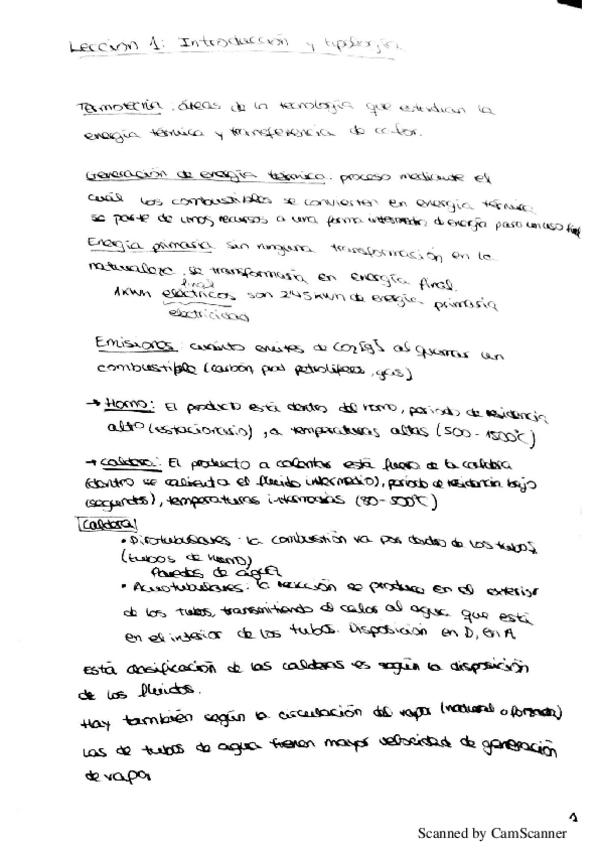 Lección 1: Introducción y tipología
Termotecnia: áreas de la tecnología que estudian la
energía térmica y transferencia de calor.
Generación de energía térmica: proceso mediante el
cual los combustibles se convierten en energía térmica
se parte de unos recursos a una forma intermedia de energía para un uso final
Energía primaria sin ninguna transformación en la
naturaleza, se transformaría en energía final.
final
1 kWh eléctricos son 2'45 kWh de energía primaria
electricidad
Emisiones: cuánto emites de CO2 [g] al quemar un
combustible (carbón, prod petrolíferos, gas)
→ Horno: El producto está dentro del horno, periodo de residencia
alto (estacionario), a temperaturas altas (500 - 1500°C)
→ Caldera: El producto a calentar está fuera de la caldera
(dentro se calienta el fluido intermedio), periodo de residencia bajo
(segundos), temperaturas intermedias (80 - 500°C)
Caldera
• Pirotubulares: la combustión va por dentro de los tubos
(tubos de humo)
Paredes de agua
• Acuotubulares: la reacción se produce en el exterior
de los tubos, transmitiendo el calor al agua que está
en el interior de los tubos. Disposición en D, en A
Esta clasificación de las calderas es según la disposición
de los fluidos.
Hay también según la circulación del vapor (natural o forzada)
Las de tubos de agua tienen mayor velocidad de generación
de vapor
1
Scanned by CamScanner